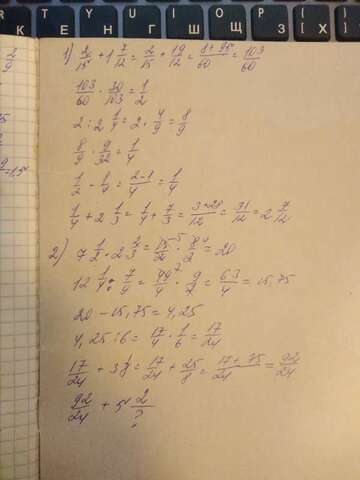 R T Y U I O P
К Е Н Г Ш Щ З Х
2/9
1) 2/15 + 1 7/12 = 2/15 + 19/12 = (8+95)/60 = 103/60
103/60 · 30/103 = 1/2
2 : 2 1/4 = 2 · 4/9 = 8/9
8/9 · 9/32 = 1/4
1/2 - 1/4 = (2-1)/4 = 1/4
1/4 + 2 1/3 = 1/4 + 7/3 = (3+28)/12 = 31/12 = 2 7/12
2) 7 1/2 · 2 2/3 = 15/2 · 8/3 = 20
12 1/4 : 7/9 = 49/4 · 9/7 = 63/4 = 15,75
20 - 15,75 = 4,25
4,25 : 6 = 17/4 · 1/6 = 17/24
17/24 + 3 1/8 = 17/24 + 25/8 = (17+75)/24 = 92/24
92/24 + 5 2/?